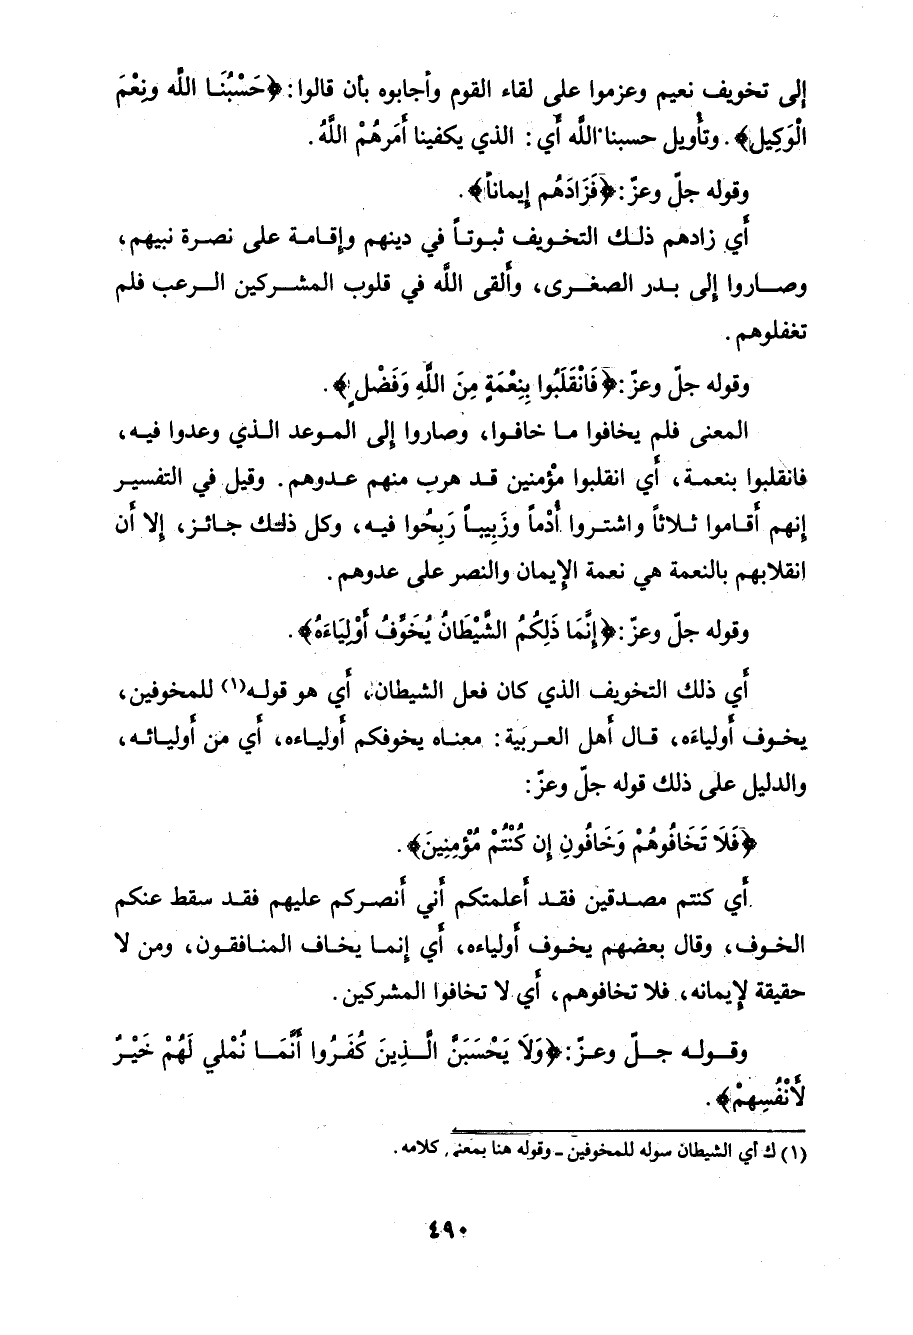 إلى تخويف نعيم وعزموا على لقاء القوم وأجابوه بأن قالوا: ﴿حَسْبُنَا اللَّه ونِعْمَ
الْوَكِيل﴾. وتأويل حسبنا اللَّه أي: الذي يكفينا أَمرَهُمْ اللَّهُ.
وقوله جلّ وعزّ: ﴿فَزَادَهُم إِيماناً﴾.
أَي زادهم ذلك التخويف ثبوتاً في دينهم وإقامة على نصرة نبيهم،
وصاروا إلى بدر الصغرى، وأَلقى اللَّه في قلوب المشركين الرعب فلم
تغفلوهم.
وقوله جلّ وعزّ: ﴿فَانْقَلَبُوا بِنِعْمَةٍ مِنَ اللَّهِ وَفَضْلٍ﴾.
المعنى فلم يخافوا ما خافوا، وصاروا إلى الموعد الذي وعدوا فيه،
فانقلبوا بنعمة، أَي انقلبوا مؤمنين قد هرب منهم عدوهم. وقيل في التفسير
إنهم أَقاموا ثلاثاً واشتروا أُدْماً وزَبِيباً رَبِحُوا فيه، وكل ذلك جائز، إلا أَن
انقلابهم بالنعمة هي نعمة الإيمان والنصر على عدوهم.
وقوله جلّ وعزّ: ﴿إِنَّمَا ذَلِكُمُ الشَّيْطَانُ يُخَوِّفُ أَوْلِيَاءَهُ﴾.
أَي ذلك التخويف الذي كان فعل الشيطان، أَي هو قوله(١) للمخوفين،
يخوف أَولياءَه، قال أَهل العربية: معناه يخوفكم أَولياءه، أَي من أَوليائه،
والدليل على ذلك قوله جلّ وعزّ:
﴿فَلَا تَخَافُوهُمْ وَخَافُونِ إِن كُنْتُمْ مُؤْمِنِينَ﴾.
أَي كنتم مصدقين فقد أَعلمتكم أَني أَنصركم عليهم فقد سقط عنكم
الخوف، وقال بعضهم يخوف أَولياءه، أَي إنما يخاف المنافقون، ومن لا
حقيقة لإيمانه، فلا تخافوهم، أَي لا تخافوا المشركين.
وقوله جلّ وعزّ: ﴿وَلَا يَحْسَبَنَّ الَّذِينَ كَفَرُوا أَنَّمَا نُمْلي لَهُمْ خَيْرٌ
لأَنْفُسِهِمْ﴾.
(١) ك أي الشيطان سوله للمخوفين - وقوله هنا بمعنى كلامه.
٤٩٠